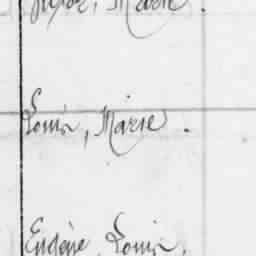 Marie.
Louis, Marie.
Eugène, Louis,